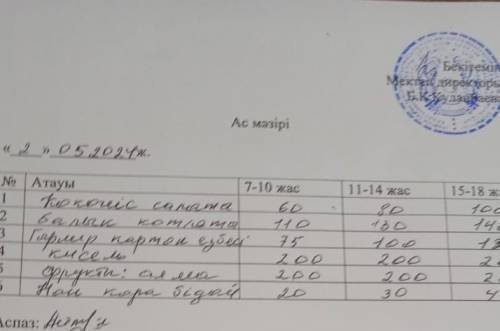 Бекітемін
Мектеп директоры
Б.К.
Ас мәзірі
« 2 » 05 2024ж.
№ Атауы 7-10 жас 11-14 жас 15-18 ж
1 Көкөніс салата 60 80 100
2 балық котлета 110 130 14
3 Гарнир картоп езбесі 75 100 13
4 кисель 200 200 2
5 фрукты: алма 200 200 2
6 Нан қара бидай 20 30 4
Аспаз: